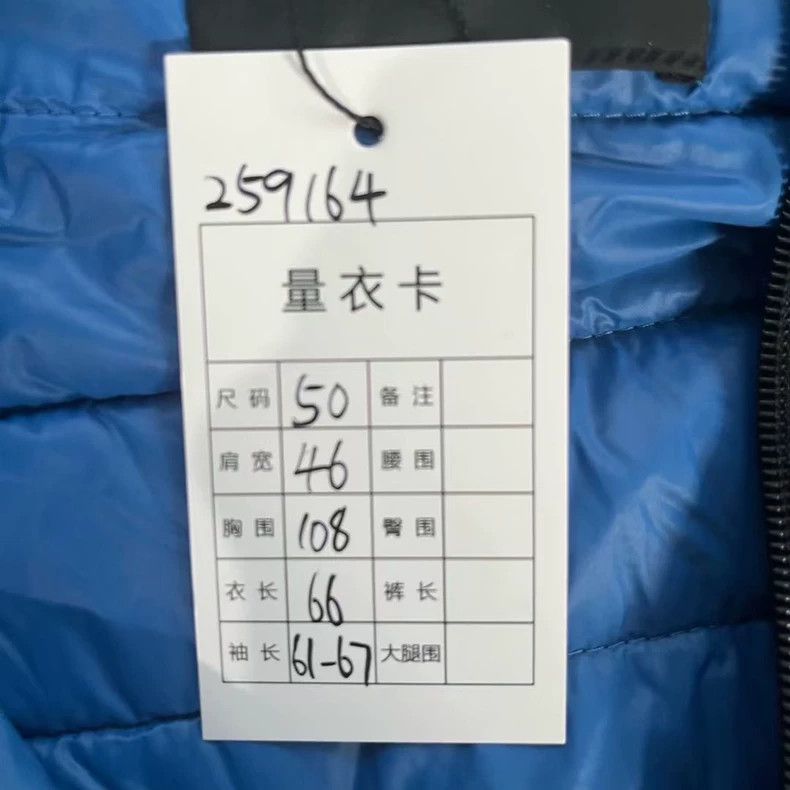 259164
量衣卡
尺码 50 备注
肩宽 46 腰围
胸围 108 臀围
衣长 66 裤长
袖长 61-67 大腿围